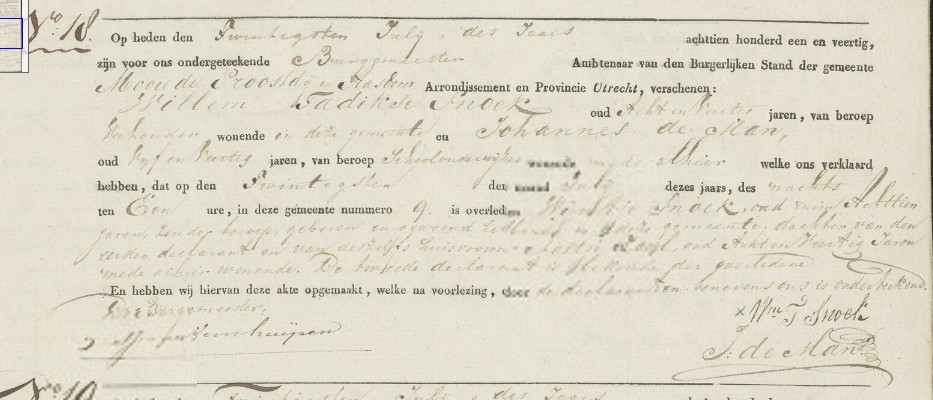 No. 18.
Op heden den Twintigsten July, des Jaars achttien honderd een en veertig,
zijn voor ons ondergeteekende Burgemeester Ambtenaar van den Burgerlijken Stand der gemeente
Arrondissement en Provincie Utrecht, verschenen:
Willem Snoek oud Acht en Veertig jaren, van beroep
wonende in deze gemeente en Johannes de Man,
oud Vyf en Veertig jaren, van beroep Schoolonderwyzer mede alhier welke ons verklaard
hebben, dat op den Twintigsten der maand July dezes jaars, des nachts
ten Een ure, in deze gemeente nummero 9. is overleden Snoek, oud ruim Achttien
Jaren, zonder beroep, geboren en gewoond hebbende in deze gemeente, dochter van den
eersten declarant en van deszelfs huisvrouw oud Acht en Veertig Jaren
mede alhier wonende. De tweede declarant is bekende der overledene
En hebben wij hiervan deze akte opgemaakt, welke na voorlezing, door de declaranten benevens ons is onderteekend.
De Burgemeester,
x Wm T Snoek
J: de Man
No 19
Twintigsten July, des Jaars